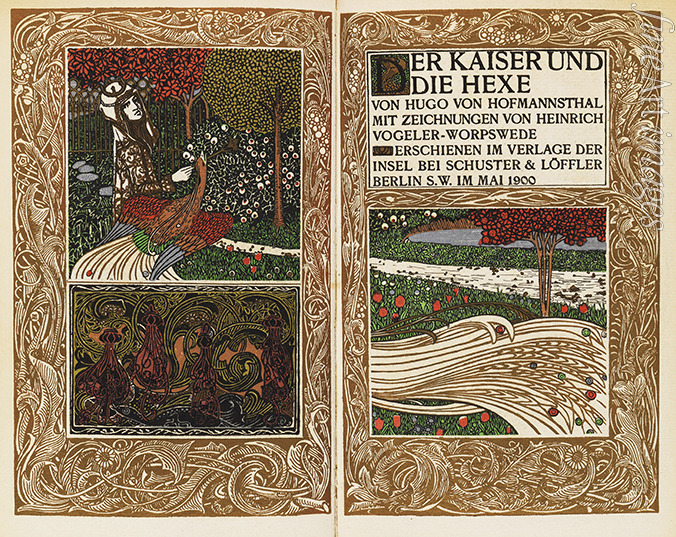 DER KAISER UND
DIE HEXE
VON HUGO VON HOFMANNSTHAL
MIT ZEICHNUNGEN VON HEINRICH
VOGELER-WORPSWEDE
ERSCHIENEN IM VERLAGE DER
INSEL BEI SCHUSTER & LÖFFLER
BERLIN S.W. IM MAI 1900
fine art images